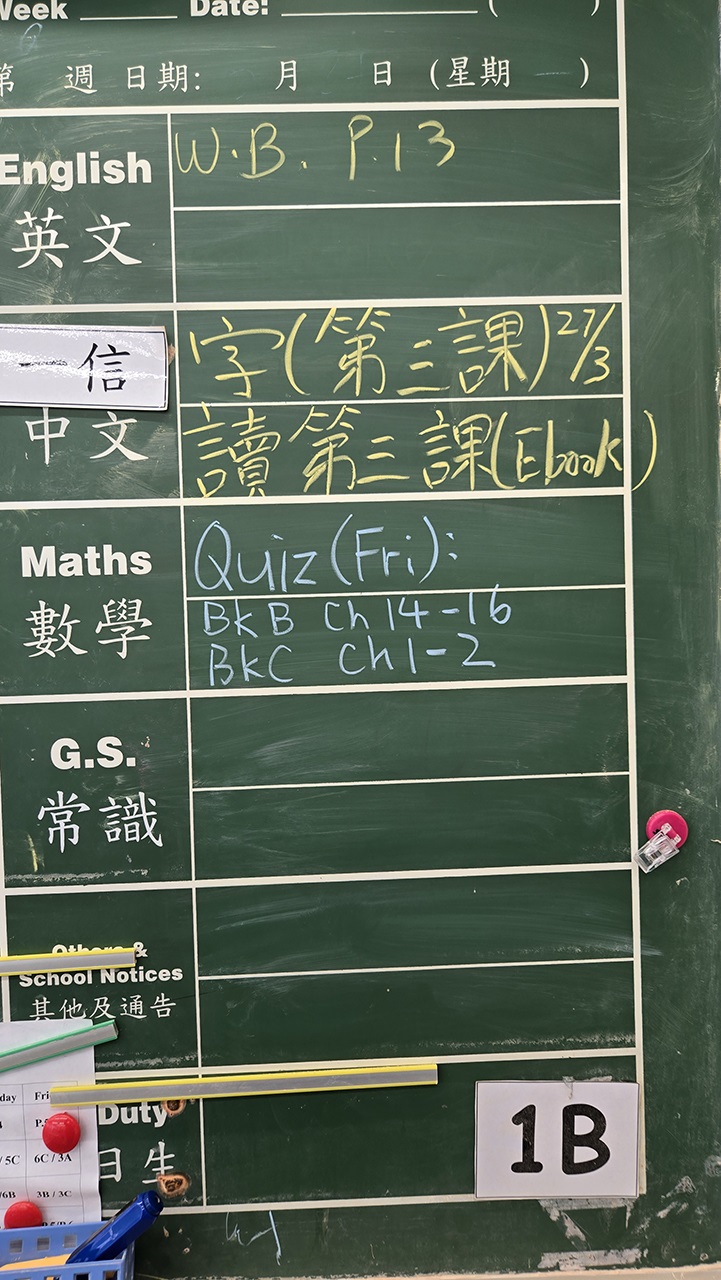 Week ______ Date: ______________ ( )
第 週 日期: 月 日 (星期 )
English
英文
W.B. P.13
一信
中文
字(第三課)27/3
讀第三課(Ebook)
Maths
數學
Quiz (Fri):
BkB Ch 14-16
BkC Ch 1-2
G.S.
常識
Others &
School Notices
其他及通告
Duty
日生
1B
day Fri
/ 5C 6C / 3A
/6B 3B / 3C